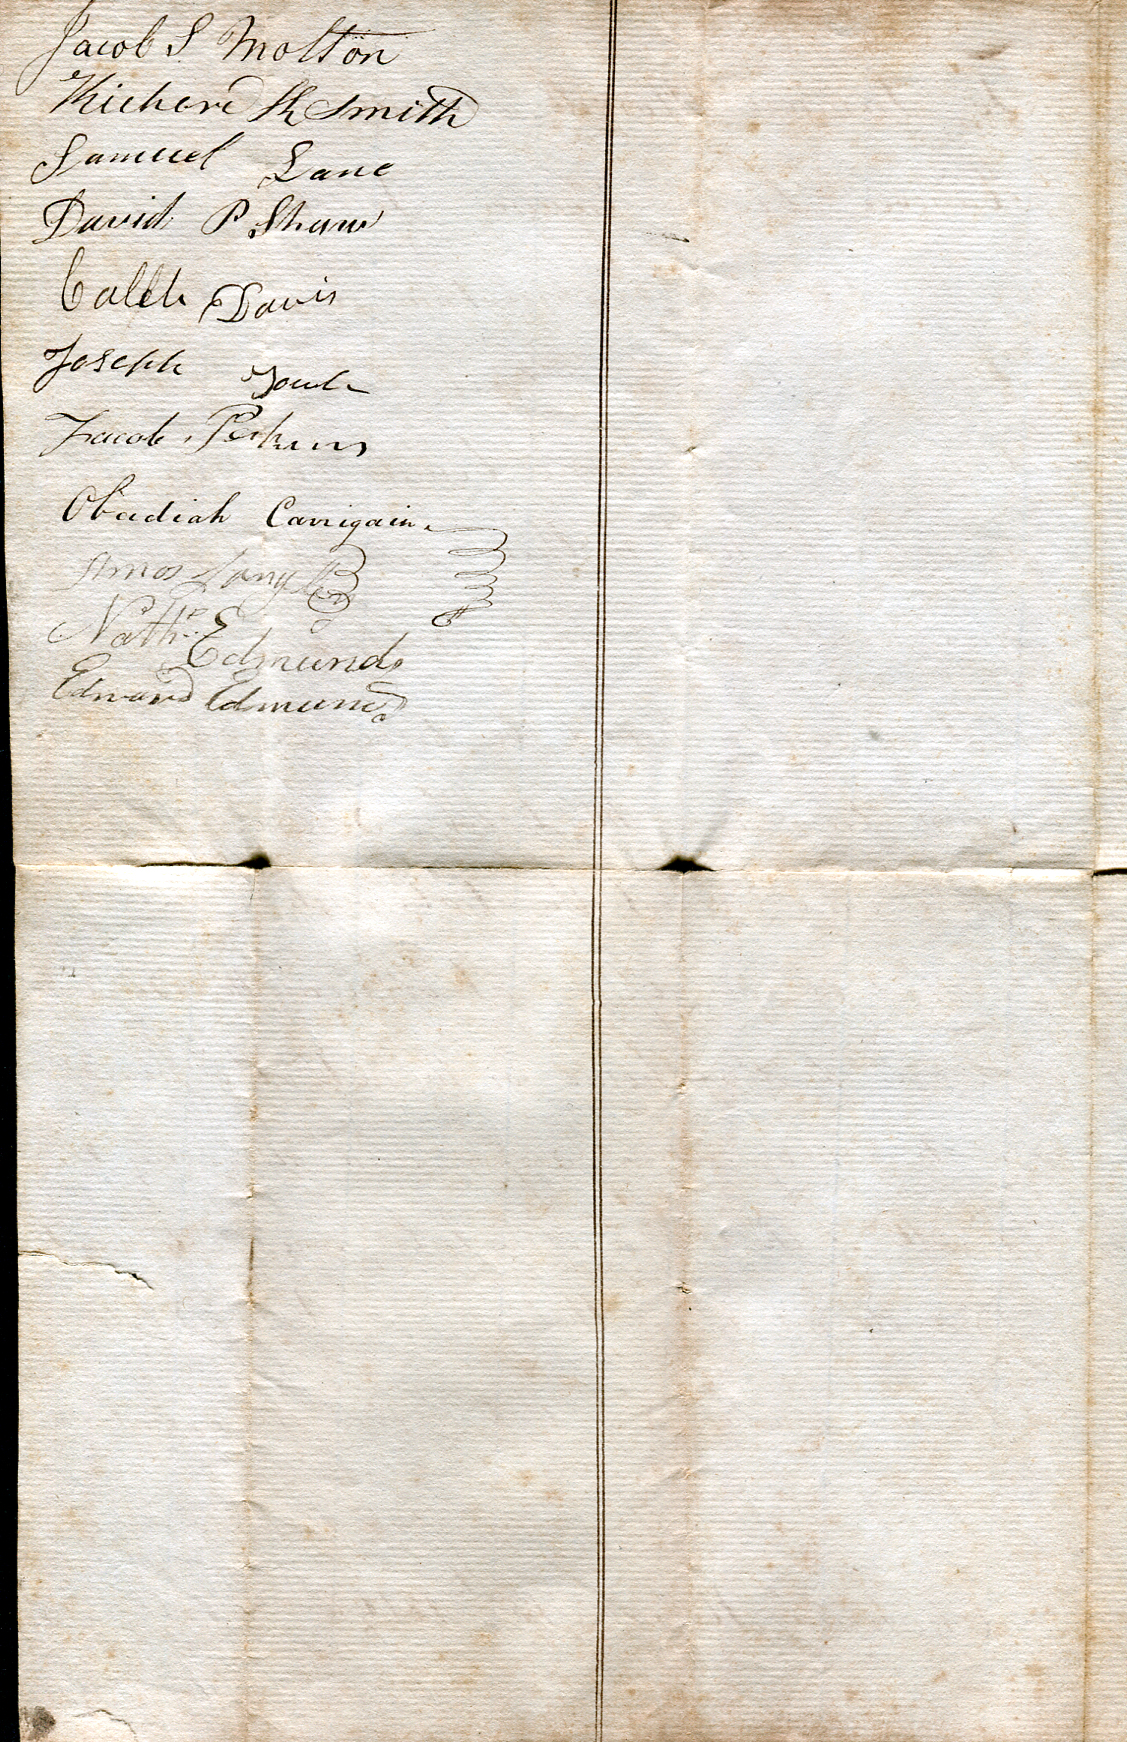 Jacob S Molton
Richard K Smith
Samuel Lane
David P Shaw
Caleb Davis
Joseph Towle
Jacob Perkins
Obadiah Carrigain
Amos Langley
Nathl. Edmunds
Edward Edmunds